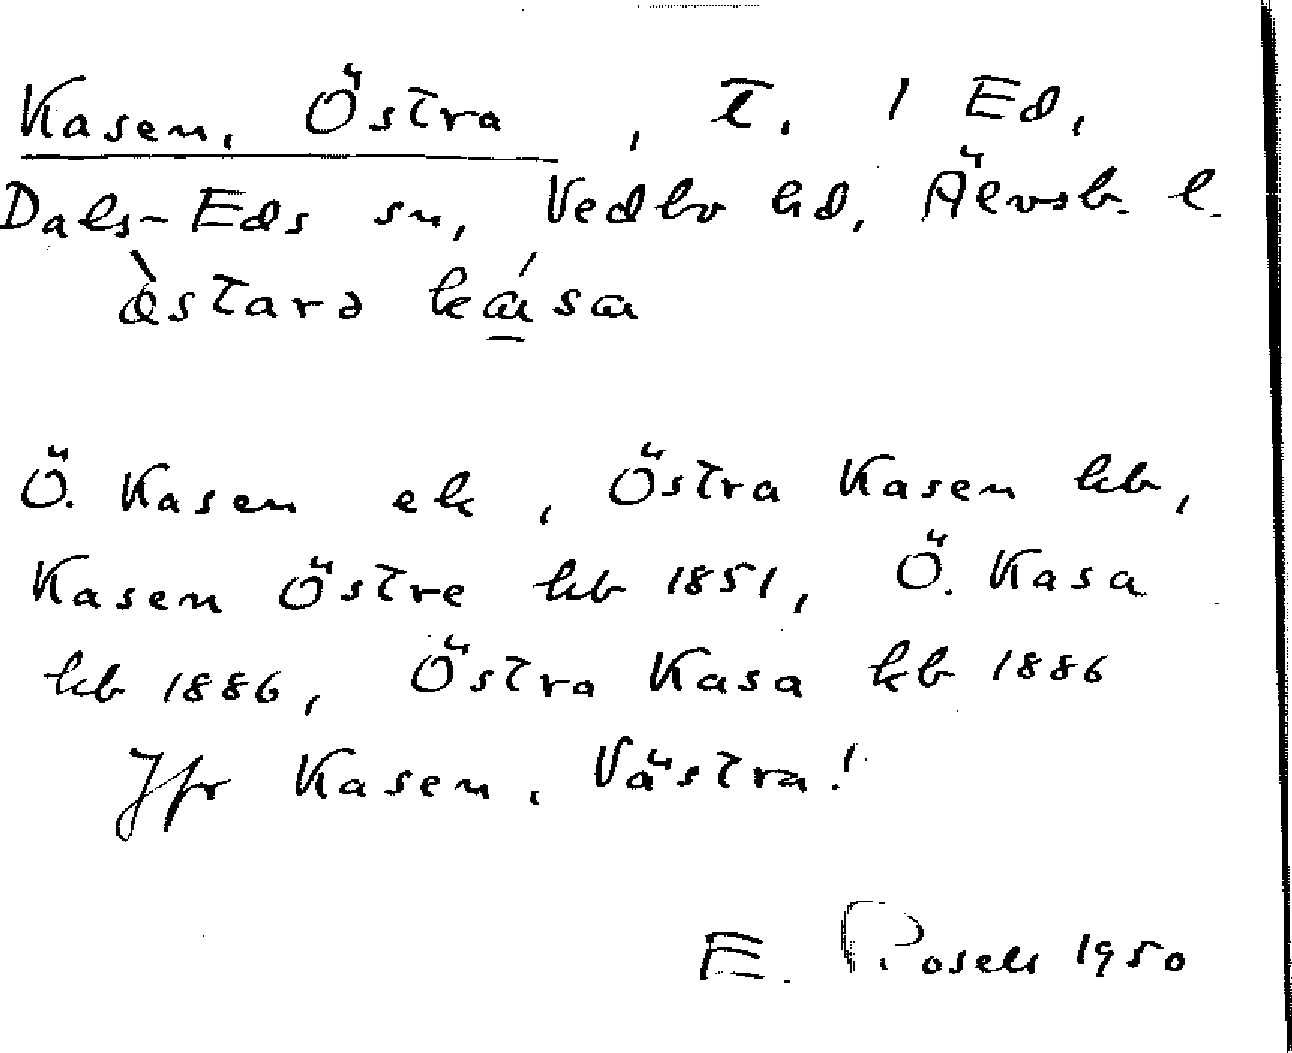 Kasen, Östra, t. 1 Ed,
Dals-Eds sn, Vedbo hd, Älvsb. l.
Ö. Kasen ek, Östra Kasen kb,
Kasen Östre kb 1851, Ö. Kasa
kb 1886, Östra Kasa kb 1886
Jfr Kasen, Västra!
E. Rosell 1950